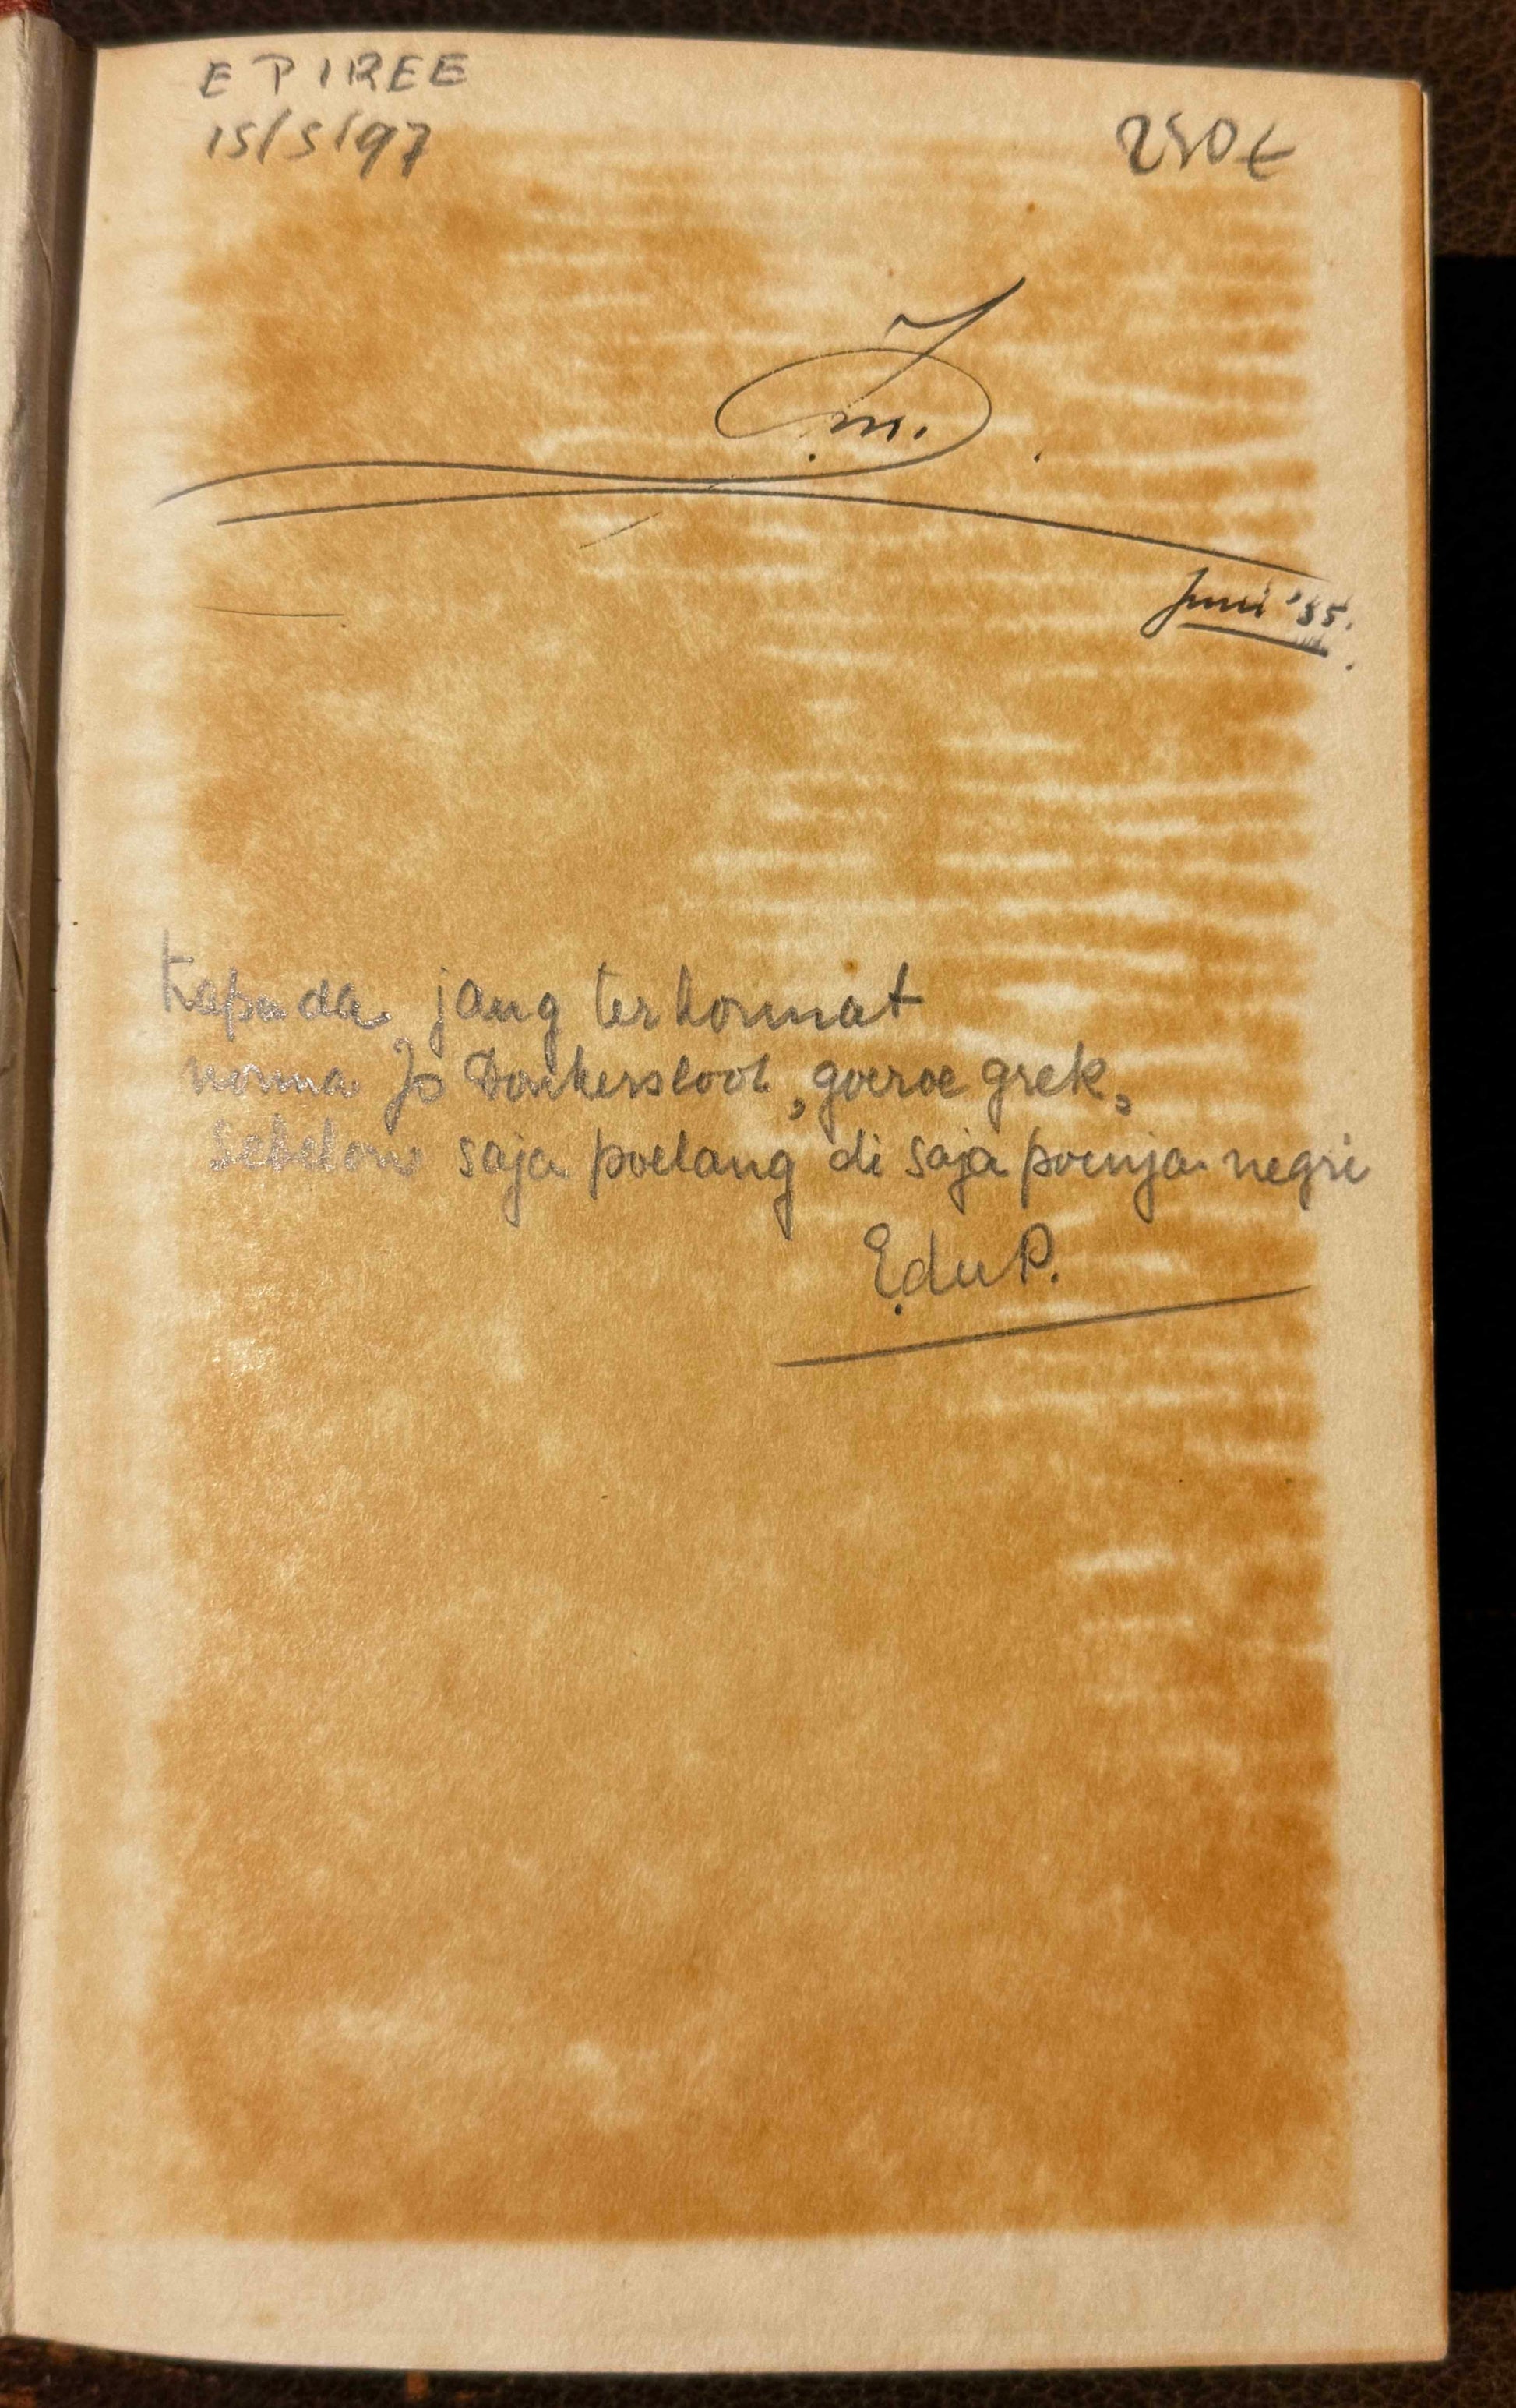 E PIREE
15/5/97
250€
m.
Juni '35.
Kapada jang terhormat
nonna Jo Donkersloot, goeroe grek,
Sebelom saja poelang di saja poenja negri
Edu P.